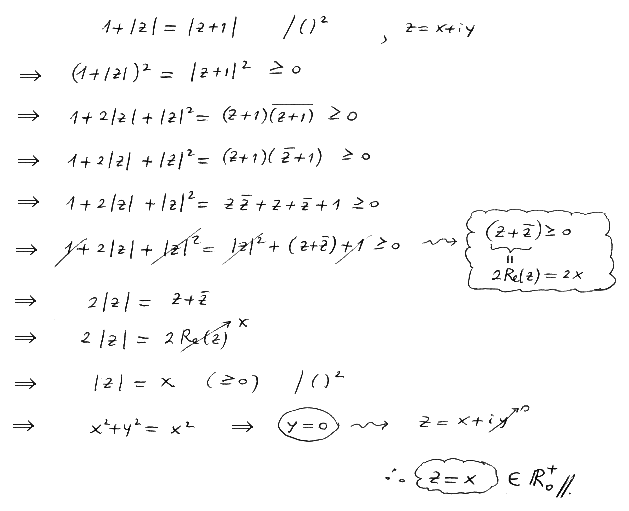 1+|z| = |z+1| /()² , z=x+iy
⇒ (1+|z|)² = |z+1|² ≥ 0
⇒ 1+2|z|+|z|² = (z+1)(z̅+̅1̅) ≥ 0
⇒ 1+2|z|+|z|² = (z+1)(z̄+1) ≥ 0
⇒ 1+2|z|+|z|² = zz̄+z+z̄+1 ≥ 0
⇒ 1+2|z|+|z|² = |z|²+(z+z̄)+1 ≥ 0 ⇝ (z+z̄) ≥ 0
=
2Re(z) = 2x
⇒ 2|z| = z+z̄
⇒ 2|z| = 2Re(z) x
⇒ |z| = x (≥0) /()²
⇒ x²+y² = x² ⇒ y=0 ⇝ z = x+iy 0
∴ z=x ∈ ℝ₀⁺ //.